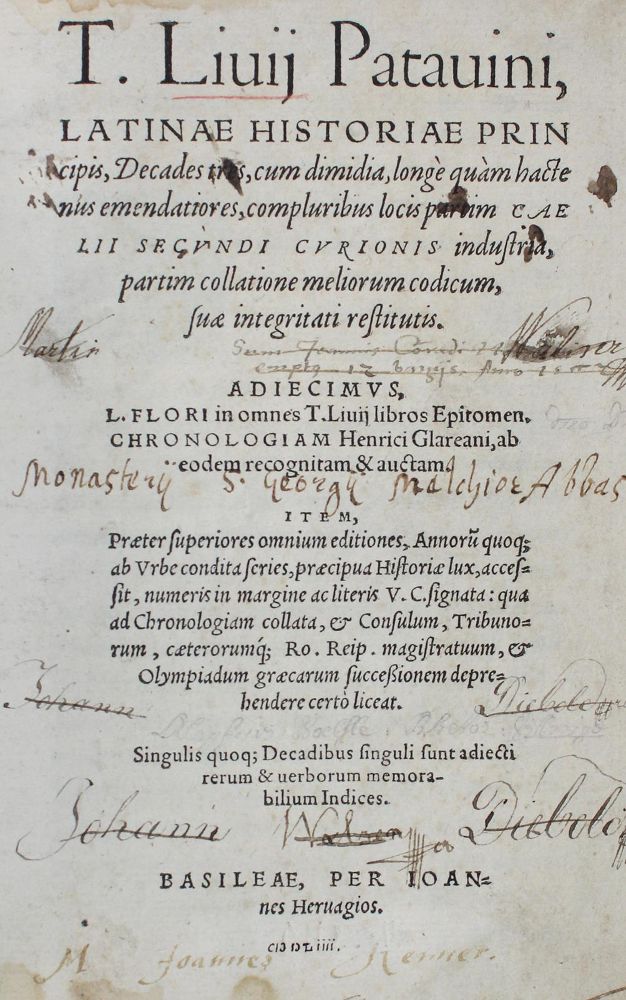 T. Liuij Patauini,
LATINAE HISTORIAE PRIN
cipis, Decades tres, cum dimidia, longè quàm hacte
nus emendatiores, compluribus locis partim CAE
LII SECVNDI CVRIONIS industria,
partim collatione meliorum codicum,
suæ integritati restitutis.
Martin
Sum Joannis
empty 12
ADIECIMVS,
L. FLORI in omnes T. Liuij libros Epitomen.
CHRONOLOGIAM Henrici Glareani, ab
eodem recognitam & auctam.
Monasterij S. Georgij Melchior Abbas
ITEM,
Præter superiores omnium editiones, Annorũ quoq;
ab Vrbe condita series, præcipua Historiæ lux, acces=
sit, numeris in margine ac literis V. C. signata: qua
ad Chronologiam collata, & Consulum, Tribuno=
rum, cæterorumq́; Ro. Reip. magistratuum, &
Olympiadum græcarum succeßionem depre=
hendere certò liceat.
Johann Diebold
Singulis quoq; Decadibus singuli sunt adiecti
rerum & uerborum memora-
bilium Indices.
Johann Diebold
BASILEAE, PER IOAN=
nes Heruagios.
M Joannes Renner.